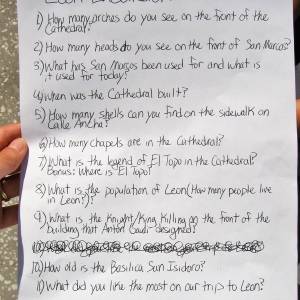 Leon Excursion
1) How many arches do you see on the front of the
Cathedral?
2) How many heads do you see on the front of San Marcos?
3) What has San Marcos been used for and what is
it used for today?
4) When was the Cathedral built?
5) How many shells can you find on the sidewalk on
Calle Ancha?
6) How many chapels are in the Cathedral?
7) What is the legend of El Topo in the Cathedral?
Bonus: Where is El Topo?
8) What is the population of Leon (How many people live
in Leon?)?
9) What is the Knight/King Killing on the front of the
building that Anton Gaudi designed?
10) How old is the Basilica San Isidoro?
11) What did you like the most on our trip to Leon?